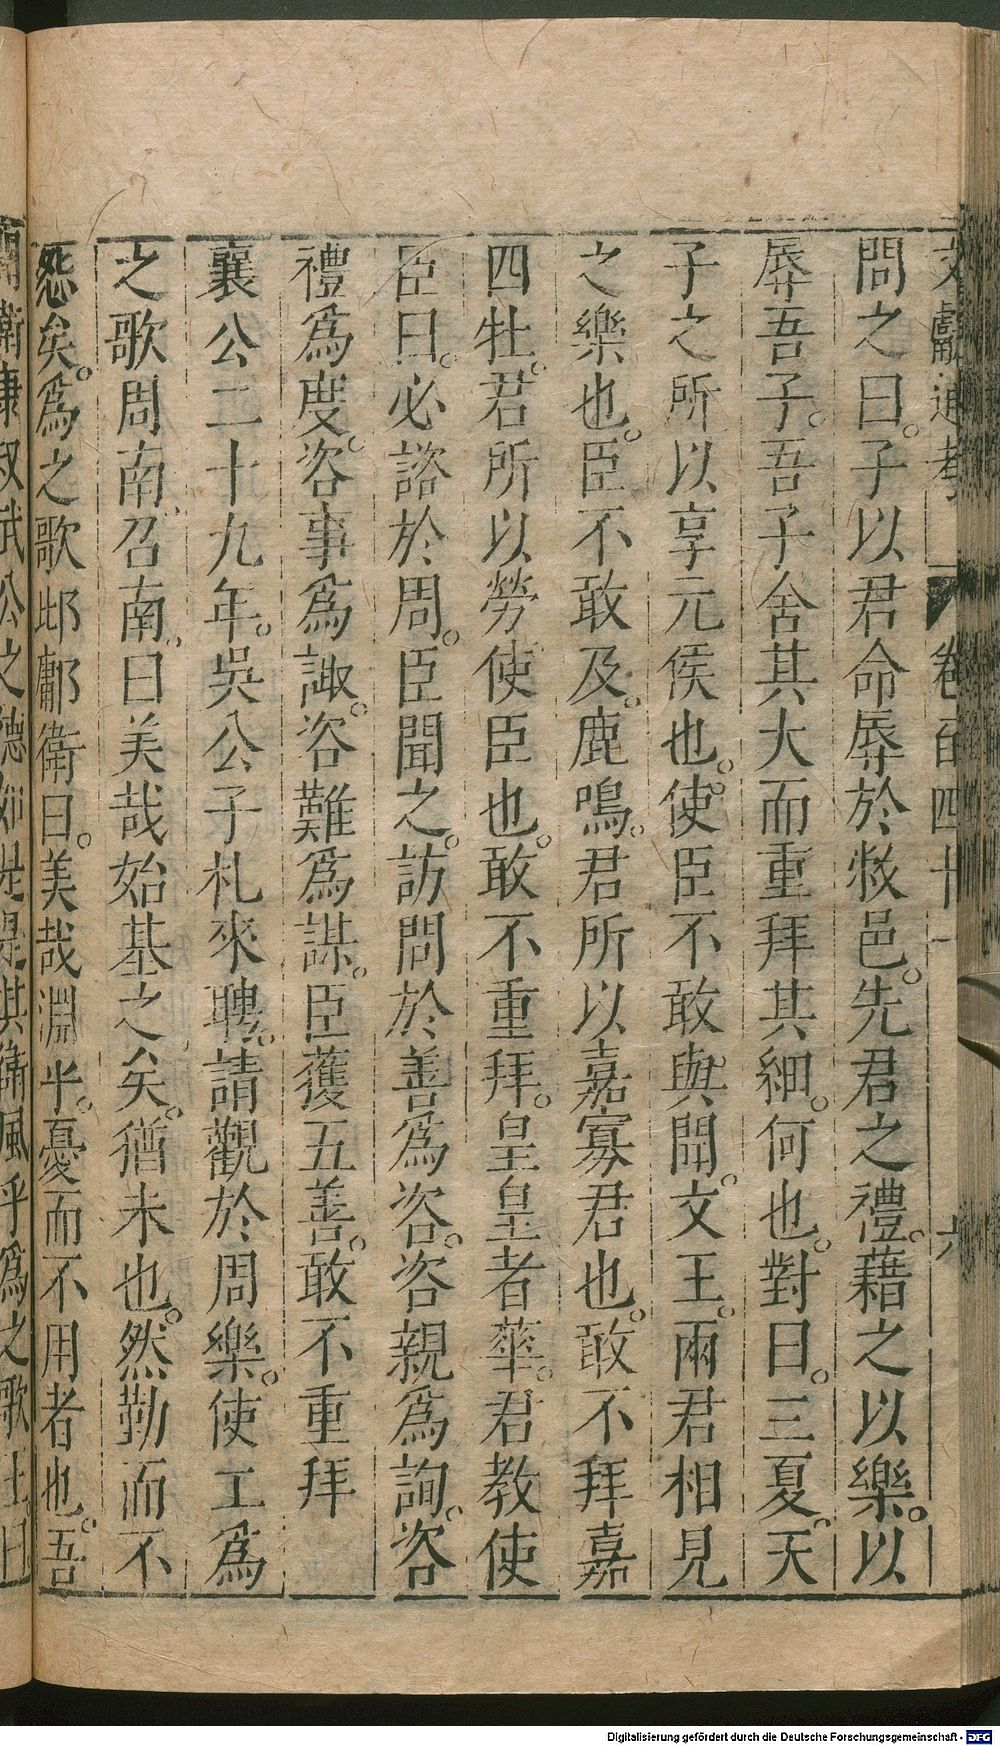 文獻通考 卷百四十一 六
問之曰子以君命辱於敝邑先君之禮藉之以樂以
辱吾子吾子舍其大而重拜其細何也對曰三夏天
子之所以享元侯也使臣不敢與聞文王兩君相見
之樂也臣不敢及鹿鳴君所以嘉寡君也敢不拜嘉
四牡君所以勞使臣也敢不重拜皇皇者華君教使
臣曰必諮於周臣聞之訪問於善為咨咨親為詢咨
禮為度咨事為諏咨難為謀臣獲五善敢不重拜
襄公二十九年吳公子札來聘請觀於周樂使工為
之歌周南召南曰美哉始基之矣猶未也然勤而不
怨矣為之歌邶鄘衛曰美哉淵乎憂而不用者也吾
聞衛康叔武公之德如是是其衛風乎為之歌王曰
Digitalisierung gefördert durch die Deutsche Forschungsgemeinschaft - DFG